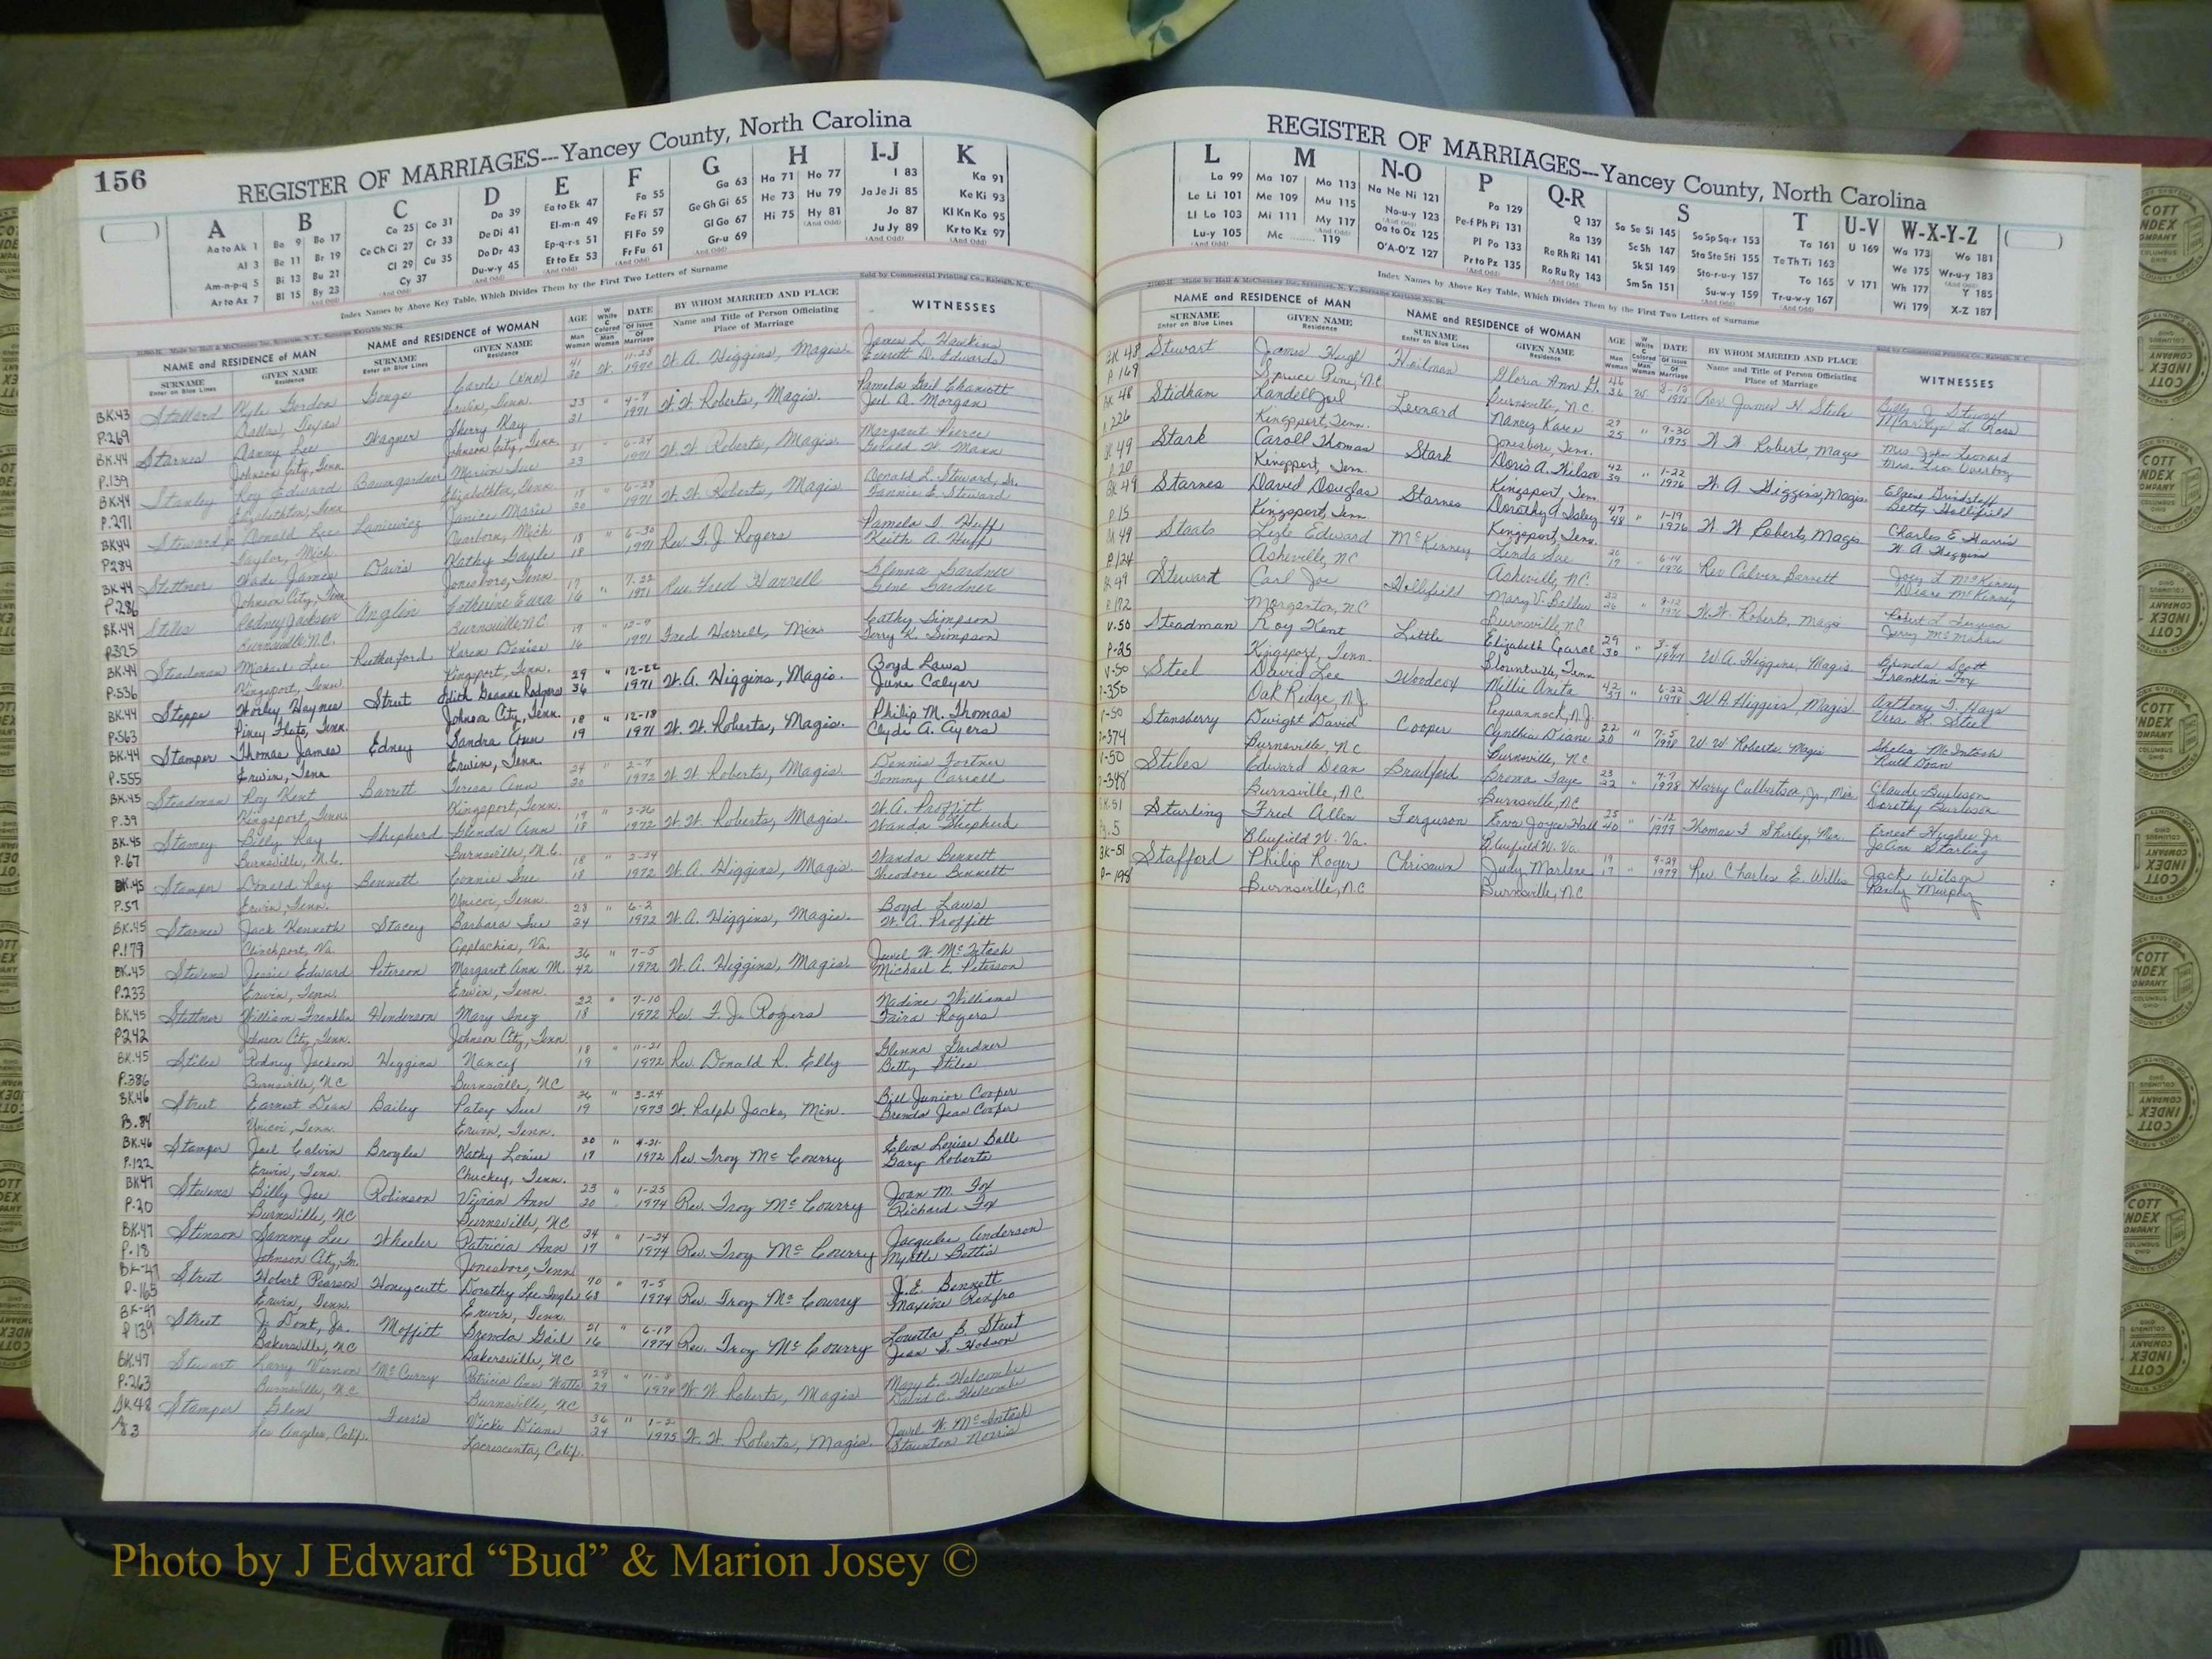 156
REGISTER OF MARRIAGES---Yancey County, North Carolina
A B C D E F G H I-J K
Aa to Ak 1 Ba 9 Bo 17 Ca 25 Co 31 Da 39 Ea to Ek 47 Fa 55 Ga 63 Ha 71 Ho 77 I 83 Ka 91
Al 3 Be 11 Br 19 Ce Ch Ci 27 Cr 33 De Di 41 El-m-n 49 Fe Fi 57 Ge Gh Gi 65 He 73 Hu 79 Ja Je Ji 85 Ke Ki 93
Am-n-p-q 5 Bi 13 Bu 21 Cl 29 Cu 35 Do Dr 43 Ep-q-r-s 51 Fl Fo 59 Gl Go 67 Hi 75 Hy 81 Jo 87 Kl Kn Ko 95
Ar to Az 7 Bl 15 By 23 Cy 37 Du-w-y 45 Et to Ez 53 Fr Fu 61 Gr-u 69 Ju Jy 89 Kr to Kz 97
Index Names by Above Key Table, Which Divides Them by the First Two Letters of Surname
Sold by Commercial Printing Co., Raleigh, N. C.
NAME and RESIDENCE of MAN NAME and RESIDENCE of WOMAN AGE DATE BY WHOM MARRIED AND PLACE WITNESSES
SURNAME GIVEN NAME SURNAME GIVEN NAME Name and Title of Person Officiating
Enter on Blue Lines Residence Enter on Blue Lines Residence Man Woman Place of Marriage
BK.43 Stallard Kyle Gordon Gouge Carole (Ann) 41 30 W. 11-28 1970 W. A. Higgins, Magis. James L. Hawkins
P.269 Dallas, Texas Erwin, Tenn. Everett D. Edwards
BK.44 Starnes Danny Lee Wagner Sherry Kay 23 21 " 4-7 1971 W. W. Roberts, Magis. Pamela Gail
P.139 Johnson City, Tenn. Johnson City, Tenn. Joel A. Morgan
BK.44 Stanley Roy Edward Baumgardner Marion Sue 21 23 " 6-24 1971 W. W. Roberts, Magis. Margaret Pierce
P.271 Elizabethton, Tenn. Elizabethton, Tenn. W. Mann
BK.44 Steward, Jr. Donald Lee Janice Marie 18 20 " 6-28 1971 W. W. Roberts, Magis. Donald L. Steward, Sr.
P.284 Taylor, Mich. Dearborn, Mich. Fannie E. Steward
BK.44 Stettner Wade James Davis Kathy Gayle 18 18 " 6-30 1971 Rev. F. J. Rogers Pamela J. Huff
P.286 Johnson City, Tenn. Jonesboro, Tenn. Keith A. Huff
BK.44 Stiles Rodney Jackson Anglin Catherine Eura 17 16 " 7-22 1971 Rev. Fred Harrell Glenna Gardner
P.325 Burnsville N.C. Burnsville N.C. Gene Gardner
BK.44 Steadman Michael Lee Rutherford Karen Denise 19 16 " 12-9 1971 Fred Harrell, Min. Cathy Simpson
P.536 Kingsport, Tenn. Kingsport, Tenn. Terry K. Simpson
BK.44 Steppe Worley Haynes Street Edith Deanne Rodgers 29 36 " 12-22 1971 W. A. Higgins, Magis. Boyd Laws
P.563 Piney Flats, Tenn. Johnson City, Tenn. June Calyer
BK.44 Stamper Thomas James Edney Sandra Ann 18 19 " 12-18 1971 W. W. Roberts, Magis. Philip M. Thomas
P.555 Erwin, Tenn Erwin, Tenn. Clyde A. Ayers
BK.45 Steadman Roy Kent Barrett Teresa Ann 24 20 " 2-7 1972 W. W. Roberts, Magis. Dennis Fortner
P.39 Kingsport, Tenn. Kingsport, Tenn. Tommy Carroll
BK.45 Stamey Billy Ray Shepherd Glenda Ann 19 18 " 2-26 1972 W. W. Roberts, Magis. W. A. Proffitt
P.67 Burnsville, N.C. Burnsville, N.C. Wanda Shepherd
BK.45 Stamper Donald Ray Bennett Connie Sue 18 18 " 2-24 1972 W. A. Higgins, Magis. Wanda Bennett
P.57 Erwin, Tenn. Unicoi, Tenn. Theodore Bennett
BK.45 Starnes Jack Kenneth Stacey Barbara Sue 28 24 " 6-2 1972 W. A. Higgins, Magis. Boyd Laws
P.179 Clinchport, Va. Applachia, Va. W. A. Proffitt
BK.45 Stevens Jessie Edward Peterson Margaret Ann M. 36 42 " 7-5 1972 W. A. Higgins, Magis. Jewel W. McIntosh
P.233 Erwin, Tenn. Erwin, Tenn. Michael E. Peterson
BK.45 Stettner William Franklin Henderson Mary Inez 22 18 " 7-10 1972 Rev. F. J. Rogers Nadine Williams
P.242 Johnson City, Tenn. Johnson City, Tenn. Faira Rogers
BK.45 Stiles Rodney Jackson Higgins Nancy 18 19 " 11-21 1972 Rev. Donald R. Elly Glenna Gardner
P.386 Burnsville, NC Burnsville, NC Betty Stiles
BK.46 Street Earnest Dean Bailey Patsy Sue 26 19 " 3-24 1973 W. Ralph Jacks, Min. Bill Junior Cooper
P.84 Unicoi, Tenn. Erwin, Tenn. Brenda Jean Cooper
BK.46 Stamper Joel Calvin Broyles Kathy Louise 20 18 " 4-21 1972 Rev. Troy McCourry Elva Louise Ball
P.122 Erwin, Tenn. Chuckey, Tenn. Gary Roberts
BK47 Stevens Billy Joe Robinson Vivian Ann 23 20 " 1-25 1974 Rev. Troy McCourry Joan M. Fox
P.20 Burnsville, NC Burnsville, NC Richard Fox
BK.47 Stinson Sammy Lee Wheeler Patricia Ann 24 17 " 1-24 1974 Rev. Troy McCourry Jacquelee Anderson
P.18 Johnson City, Tn. Jonesboro, Tenn Myrtle Bettis
BK-47 Street Hobert Pearson Honeycutt Dorothy Lee Ingle 70 68 " 7-5 1974 Rev. Troy McCourry J.E. Bennett
P-165 Erwin, Tenn. Erwin, Tenn. Maxine Renfro
BK-47 Street J. Dont, Jr. Moffitt Brenda Gail 21 16 " 6-17 1974 Rev. Troy McCourry Louetta B. Street
P 139 Bakersville, NC Bakersville, NC Jean S. Hobson
BK.47 Stewart Larry Vernon McCurry Patricia Ann Watts 29 29 " 11-8 1974 W. W. Roberts, Magis Mary E. Holcombe
P.263 Burnsville, N.C. Burnsville, NC David C. Holcombe
BK.48 Stamper Glen Ferris Vicki Diane 36 24 " 1-2 1975 W. W. Roberts, Magis. Jewel W. McIntosh
P.3 Los Angeles, Calif. Lacrescenta, Calif. Staunton Norris
REGISTER OF MARRIAGES---Yancey County, North Carolina
L M N-O P Q-R S T U-V W-X-Y-Z
La 99 Ma 107 Mo 113 Na Ne Ni 121 Pa 129 Q 137 Sa Se Si 145 So Sp Sq-r 153 Ta 161 U 169 Wa 173 Wo 181
Le Li 101 Me 109 Mu 115 No-u-y 123 Pe-f Ph Pi 131 Ra 139 Sc Sh 147 Sta Ste Sti 155 Te Th Ti 163 We 175 Wr-u-y 183
Ll Lo 103 Mi 111 My 117 Oa to Oz 125 Pl Po 133 Re Rh Ri 141 Sk Sl 149 Sto-r-u-y 157 To 165 V 171 Wh 177 Y 185
Lu-y 105 Mc 119 O'A-O'Z 127 Pr to Pz 135 Ro Ru Ry 143 Sm Sn 151 Su-w-y 159 Tr-u-w-y 167 Wi 179 X-Z 187
Index Names by Above Key Table, Which Divides Them by the First Two Letters of Surname
NAME and RESIDENCE of MAN NAME and RESIDENCE of WOMAN AGE DATE BY WHOM MARRIED AND PLACE WITNESSES
SURNAME GIVEN NAME SURNAME GIVEN NAME Name and Title of Person Officiating
Enter on Blue Lines Residence Enter on Blue Lines Residence Man Woman Place of Marriage
BK 48 Stewart James Hugh Heilman Gloria Ann G. 46 36 W 1975 Rev. James H Steele Billy J Stewart
P 169 Spruce Pine, N.C. Burnsville, N.C. Marilyn L. Ross
BK 48 Stidham Randell Joel Leonard Nancy Karen 27 25 " 9-30 1975 W W Roberts, Magis Mrs. John Leonard
P. 226 Kingsport, Tenn. Jonesboro, Tenn.
49 Stark Caroll Thomas Stark Doris A. Wilson 42 39 " 1-22 1976 W. A. Higgins, Magis. Elzene Grindstaff
P.20 Kingsport, Tenn. Kingsport, Tenn. Betty Hollifield
BK 49 Starnes David Douglas Starnes Dorothy A Isley 47 48 " 1-19 1976 W W Roberts, Magis Charles E. Harris
P.15 Kingsport, Tenn Kingsport, Tenn. W A Higgins
49 Staats Lyle Edward McKinney Linda Sue 20 17 " 6-14 1976 Rev Calvin Barrett Joey L McKinney
P/124 Asheville, NC Asheville, NC. Diane McKinney
49 Stewart Carl Joe Hollifield Mary V. Ballew 22 26 " 8-12 1976 W.W. Roberts, Magis Robert L Ferguson
P.172 Morganton, NC Burnsville, NC Jerry McMahan
V.50 Steadman Roy Kent Little Elizabeth Carol 29 30 " 3-4 W A. Higgins, Magis Brenda Scott
P-25 Kingsport, Tenn. Blountville, Tenn Franklin Fox
V-50 Steel David Lee Woodcox Millie Anita 42 37 " 6-22 1978 W A Higgins, Magis Anthony J. Hays
P-350 Oak Ridge, N.J. Pequannock, N.J. Vera R. Steel
V-50 Stansberry Dwight David Cooper Cynthia Diane 22 20 " 7-5 1978 W. W Roberts Magis Shelia McIntosh
P-374 Burnsville, NC Burnsville, NC Ruth Doan
V-50 Stiles Edward Dean Bradford Broma Faye 23 22 " 7-7 1978 Harry Culbertson, Jr., Min Claude Burleson
P-348 Burnsville, N.C. Burnsville, NC Dorothy Burleson
BK.51 Starling Fred Allen Ferguson Eova Joyce Hall 25 40 " 1-12 1979 Thomas F Shirley, Min. Ernest Hughes Jr
Pg.5 Bluefield W. Va. Bluefield W. Va JoAnn Starling
BK-51 Stafford Philip Roger Chrisawn Judy Marlene 19 17 " 9-29 1979 Rev. Charles E. Willis Jack Wilson
P-198 Burnsville, NC Burnsville, NC Randy Murphy
COTT
INDEX
COMPANY
COLUMBUS
OHIO
Photo by J Edward “Bud” & Marion Josey ©